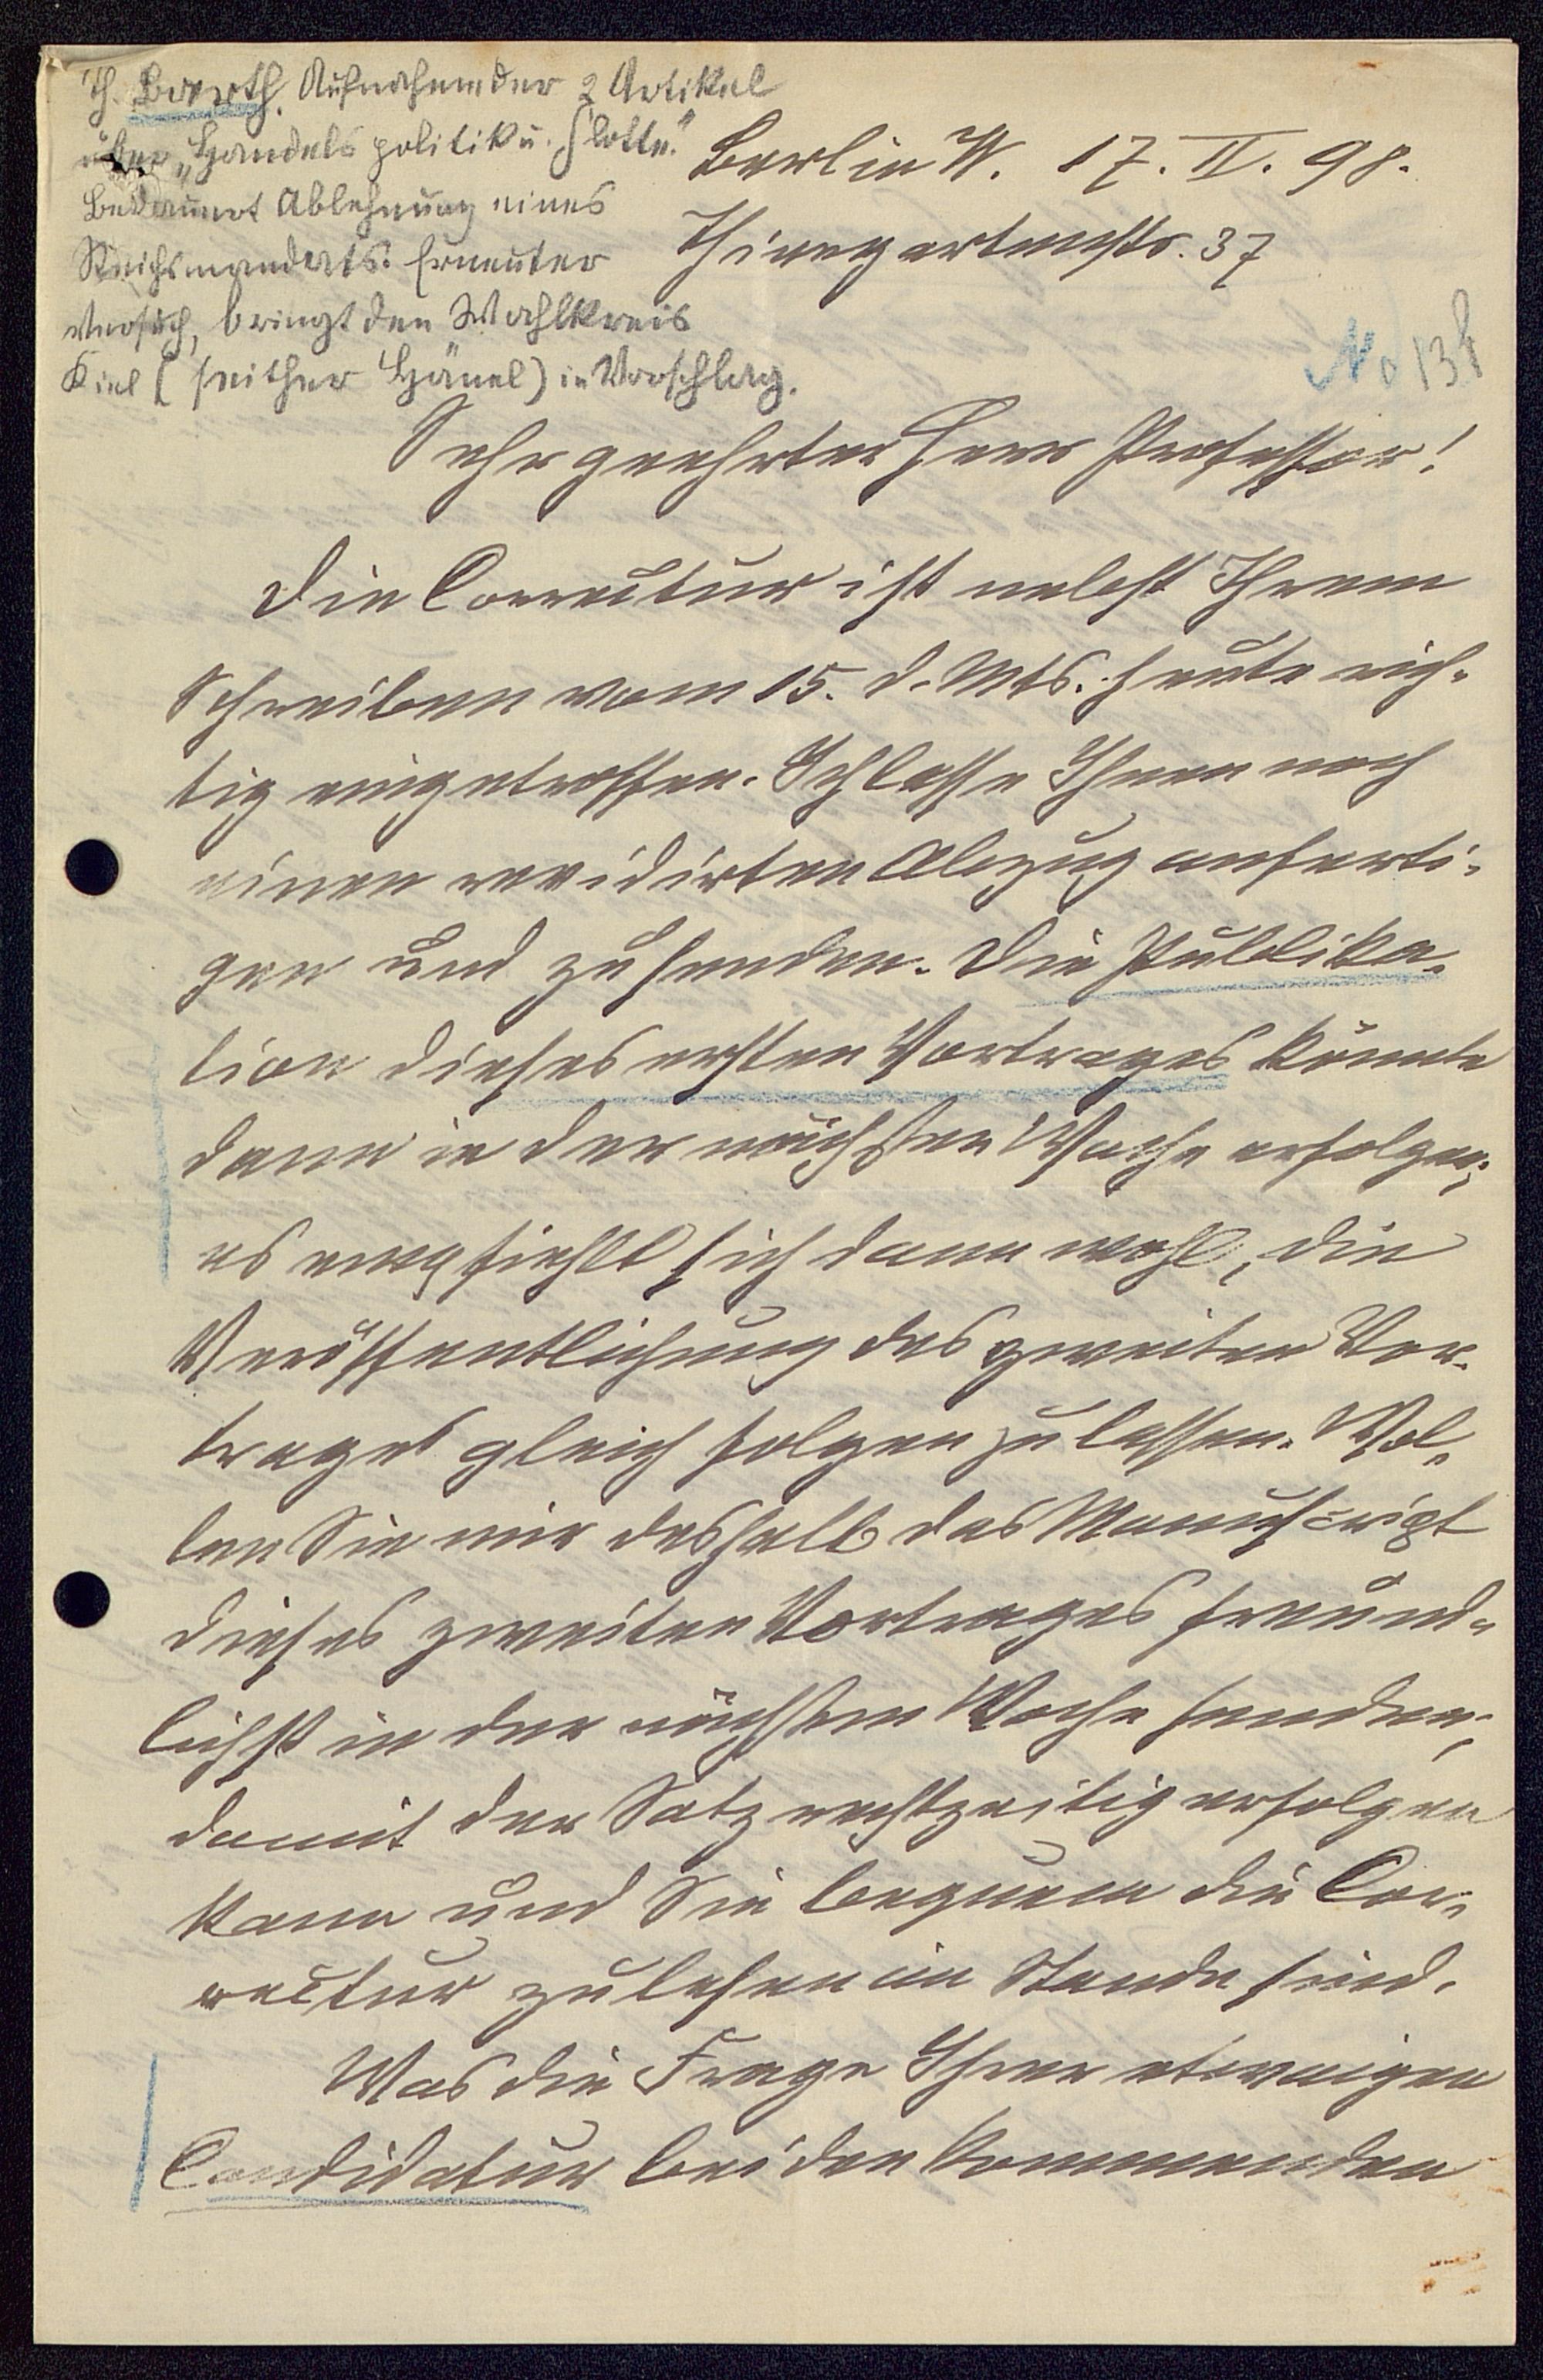 Th. Barth. Aufnahme der 2 Artikel
über „Handelspolitik u. Flotte."
Bedauert Ablehnung eines
Reichsmandats. Erneuter
Versuch, bringt den Wahlkreis
Kiel (seither Hänel) in Vorschlag.
Berlin W. 17. II. 98.
Thiergartenstr. 37
No 138
Sehr geehrter Herr Professor!
Die Correctur ist nebst Ihrem
Schreiben vom 15. d. Mts. heute rich-
tig eingetroffen. Ich lasse Ihnen noch
einen revidirten Abzug anferti-
gen und zusenden. Die Publika-
tion dieses ersten Vortrages könnte
dann in der nächsten Woche erfolgen;
es empfiehlt sich dann wohl, die
Veröffentlichung des zweiten Vor-
trages gleich folgen zu lassen. Wol-
len Sie mir deshalb das Manuscript
dieses zweiten Vortrages freund-
lichst in der nächsten Woche senden,
damit der Satz rechtzeitig erfolgen
kann und Sie bequem die Cor-
rectur zu lesen im Stande sind.
Was die Frage Ihrer etwaigen
Candidatur bei den kommenden